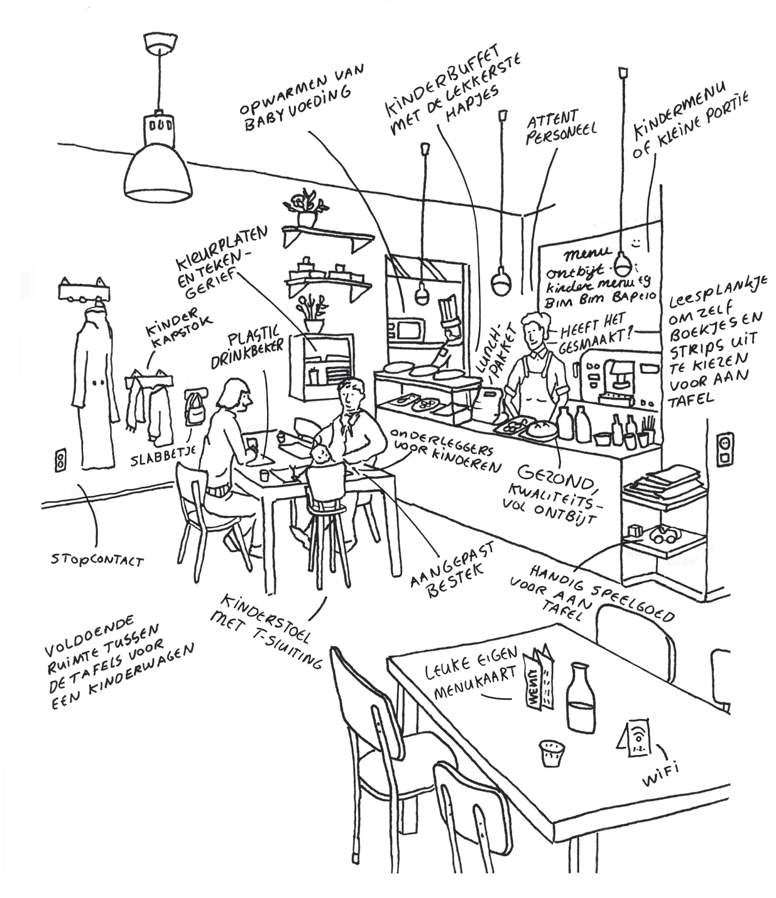 OPWARMEN VAN
BABYVOEDING
KINDERBUFFET
MET DE LEKKERSTE
HAPJES
ATTENT
PERSONEEL
KINDERMENU
OF KLEINE PORTIE
KLEURPLATEN
EN TEKEN-
GERIEF
KINDER
KAPSTOK
PLASTIC
DRINKBEKER
menu
ontbijt
kinder menu
BIM BIM BAP €10
HEEFT HET
GESMAAKT?
LUNCH-
PAKKET
LEESPLANKJE
OM ZELF
BOEKJES EN
STRIPS UIT
TE KIEZEN
VOOR AAN
TAFEL
SLABBETJE
ONDERLEGGERS
VOOR KINDEREN
GEZOND,
KWALITEITS-
VOL ONTBIJT
STOPCONTACT
AANGEPAST
BESTEK
HANDIG SPEELGOED
VOOR AAN
TAFEL
KINDERSTOEL
MET T-SLUITING
VOLDOENDE
RUIMTE TUSSEN
DE TAFELS VOOR
EEN KINDERWAGEN
LEUKE EIGEN
MENUKAART
MENU
WiFi